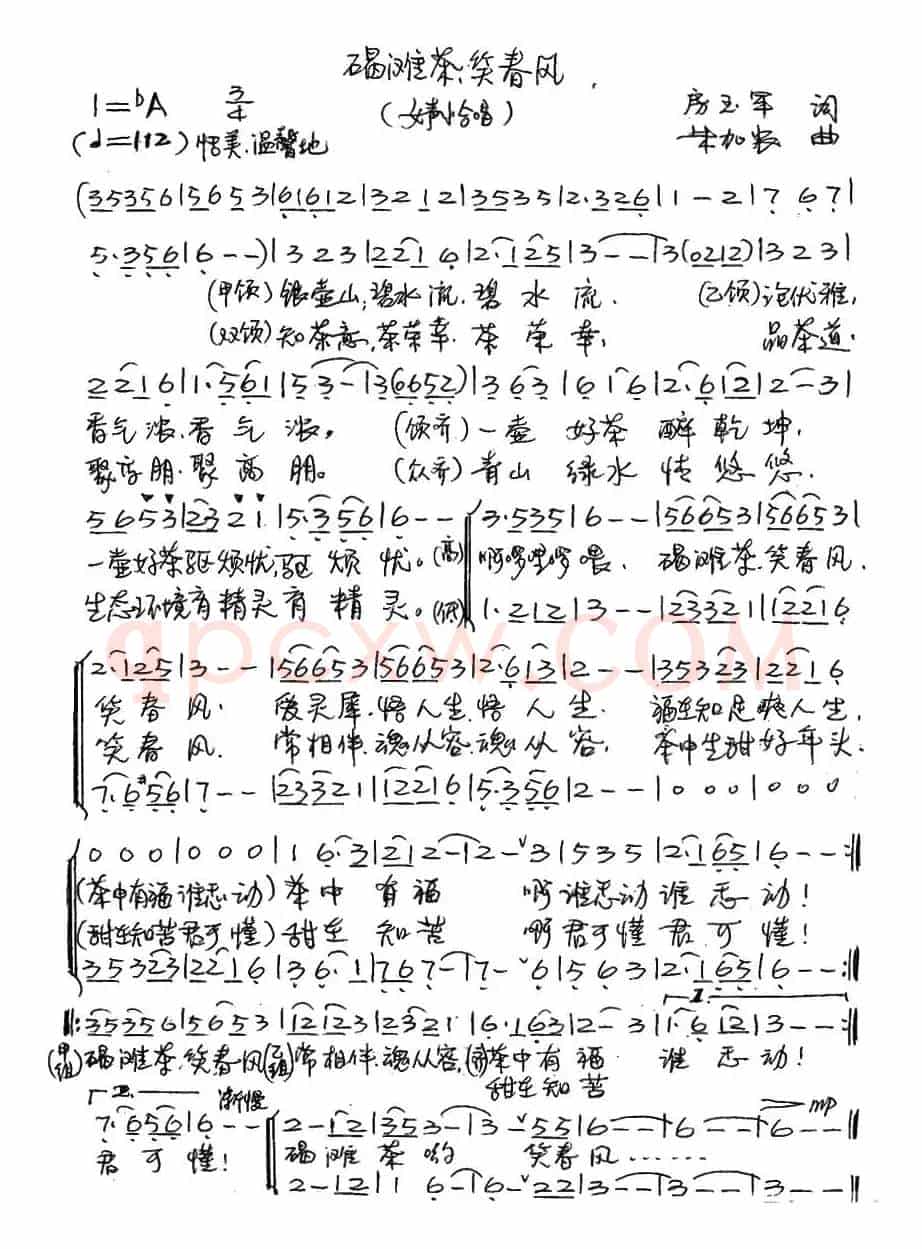 碣滩茶,笑春风
1=♭A 3/4 (女声小合唱) 房玉军 词
(♩=112) 恬美.温馨地 加农 曲
(35356|5653|61612|3212|3535|2.326|1-2|7 67|
5.356|6--)|323|2216|2.125|3--|3(0212)|323|
(甲领) 银壶山,碧水流.碧水流. (乙领)论优雅,
(双领) 知茶意,茶荣幸.茶荣幸, 品茶道.
2216|1.561|53-|3(6652)|363|616|2.612|2-3|
香气浓.香气浓, (领齐)一壶好茶醉乾坤,
聚高朋.聚高朋。 (众齐)青山绿水情悠悠.
5653|2321|5.356|6--|3.535|6--|56653|56653|
一壶好茶驱烦忧,驱烦忧。(高) 啊啰哩啰喂. 碣滩茶.笑春风.
生态环境育精灵育精灵。(低) 1.212|3--|23321|12216
2.125|3--|56653|56653|2.613|2--|35323|2216
笑春风. 爱灵犀.悟人生.悟人生. 福在知足爽人生,
笑春风. 常相伴.魂从容.魂从容, 茶中生甜好年头.
7.6#56|7--|23321|12216|5.356|2--|000|000
000|000|16.3|212-|2-3|535|2.165|6--:‖
(茶中有福谁感动) 茶中有福 啊谁感动谁感动!
(甜在知苦君可懂) 甜在知苦 啊君可懂君可懂!
35323|2216|36.1|767-|7-6|563|2.165|6--:‖
1.
‖:35356|5653|12123|2321|6.163|2-3|1.612|3--:‖
(甲组) 碣滩茶.笑春风(乙组)常相伴.魂从容,(齐)茶中有福. 谁感动!
甜在知苦
2. 渐慢 mp
7.656|6--|2-12|353-|3-55|6--|6--|6--‖
君可懂! 碣滩茶哟 笑春风……
2-12|16-|6-22|3--|3--|3--‖
qpcxw.com